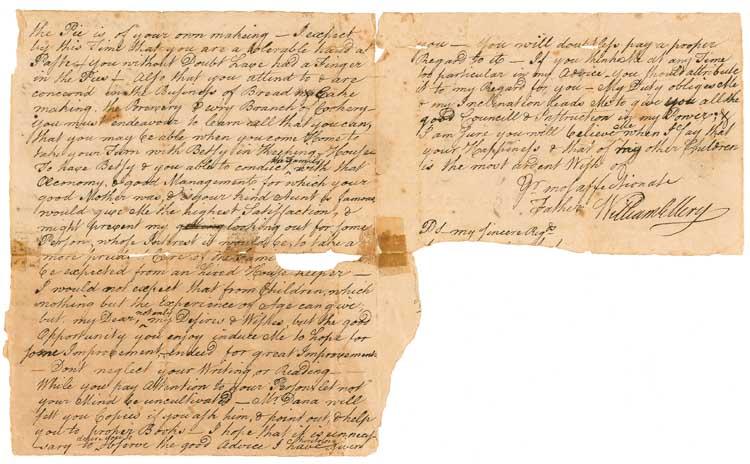 the Pie is of your own making — I expect
by this Time that you are a tolerable hand at
Paste, you without Doubt have had a Finger
in the Pies — Also that you attend to & are
concernd in the Business of Bread & Cake
making, the Brewery & evry Branch of Cookery —
You must endeavour to learn all that you can,
that you may be able when you come Home to
take your Turn with Betsy in Keeping House —
To have Betsy & you able to conduct the Family with that
Œconomy, & good Management for which your
good Mother was, & your kind Aunt is famous
would give Me the highest Satisfaction, &
might prevent my looking out for some
Person, whose Interest it would be, to take a
more Care of the
be expected from an hired House keeper —
I would not expect that from Children, which
nothing but the Experience of Age can give;
but, my Dear, not only my Desires & Wishes, but the good
Opportunity you enjoy induce Me to hope for
some Improvement, indeed for great Improvements
— Don't neglect your Writing or Reading —
While you pay Attention to your Person let not
your Mind be uncultivated — Mr. Dana will
sett you Copies if you ask him, & point out, & help
you to proper Books — I hope that it is unneces
sary to desire you to observe the good Advice I have given
you — You will doubtless pay a proper
Regard to it — If you think Me at any Time
too particular in my Advice you should attribute
it to my Regard for you — My Duty obliges Me
& my Inclination leads Me to give you all the
good Councill & Instruction in my Power, &
I am sure you will believe Me when I say that
your Happiness & that of my other Children
is the most ardent Wish of
Yr. most affectionate
Father William Ellery
PS — my sincere Regds